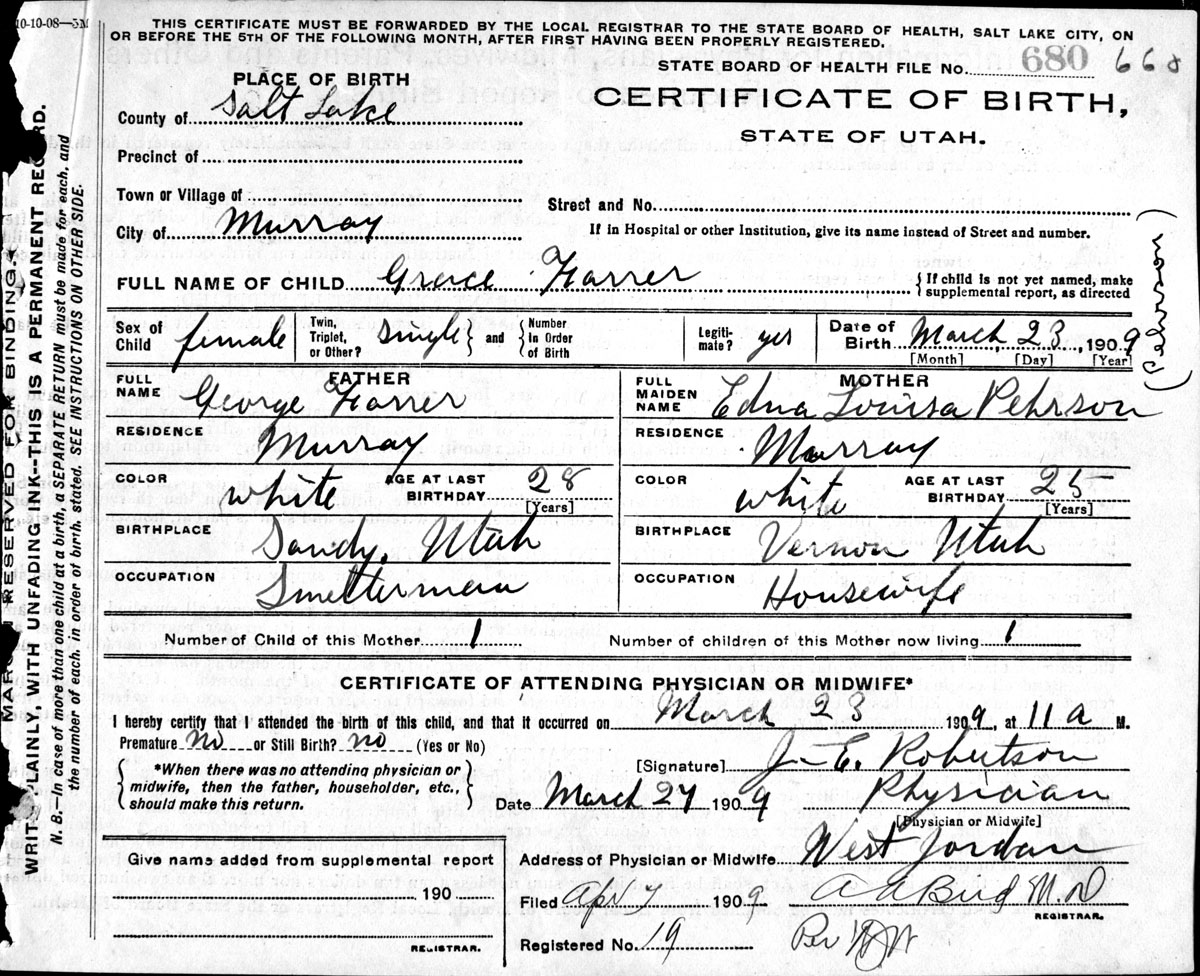 10-10-08—3M
THIS CERTIFICATE MUST BE FORWARDED BY THE LOCAL REGISTRAR TO THE STATE BOARD OF HEALTH, SALT LAKE CITY, ON
OR BEFORE THE 5TH OF THE FOLLOWING MONTH, AFTER FIRST HAVING BEEN PROPERLY REGISTERED.
STATE BOARD OF HEALTH FILE No. 680 668
PLACE OF BIRTH
CERTIFICATE OF BIRTH,
STATE OF UTAH.
County of Salt Lake
Precinct of
Town or Village of
Street and No.
City of Murray
If in Hospital or other Institution, give its name instead of Street and number.
FULL NAME OF CHILD Grace Farrer
{If child is not yet named, make
supplemental report, as directed
Sex of Child female
Twin, Triplet, or Other? single } and { Number in Order of Birth
Legiti-mate? yes
Date of Birth March 23, 1909
[Month] [Day] [Year]
FATHER
FULL NAME George Farrer
RESIDENCE Murray
COLOR white AGE AT LAST BIRTHDAY 28
[Years]
BIRTHPLACE Sandy, Utah
OCCUPATION Smelterman
MOTHER
FULL MAIDEN NAME Edna Louisa Pehrson
RESIDENCE Murray
COLOR white AGE AT LAST BIRTHDAY 25
[Years]
BIRTHPLACE Vernon Utah
OCCUPATION Housewife
Number of Child of this Mother 1
Number of children of this Mother now living 1
CERTIFICATE OF ATTENDING PHYSICIAN OR MIDWIFE*
I hereby certify that I attended the birth of this child, and that it occurred on March 23 1909, at 11 a M.
Premature no or Still Birth? no (Yes or No)
{ *When there was no attending physician or
midwife, then the father, householder, etc.,
should make this return. }
[Signature] J. E. Robertson
Date March 27 1909 Physician
[Physician or Midwife]
Give name added from supplemental report
190
REGISTRAR.
Address of Physician or Midwife West Jordan
Filed Apr 7 1909 M.D
REGISTRAR.
Registered No. 19 Per
RESERVED FOR BINDING
WRITE PLAINLY, WITH UNFADING INK--THIS IS A PERMANENT RECORD.
N. B.—In case of more than one child at a birth, a SEPARATE RETURN must be made for each, and
the number of each, in order of birth, stated. SEE INSTRUCTIONS ON OTHER SIDE.